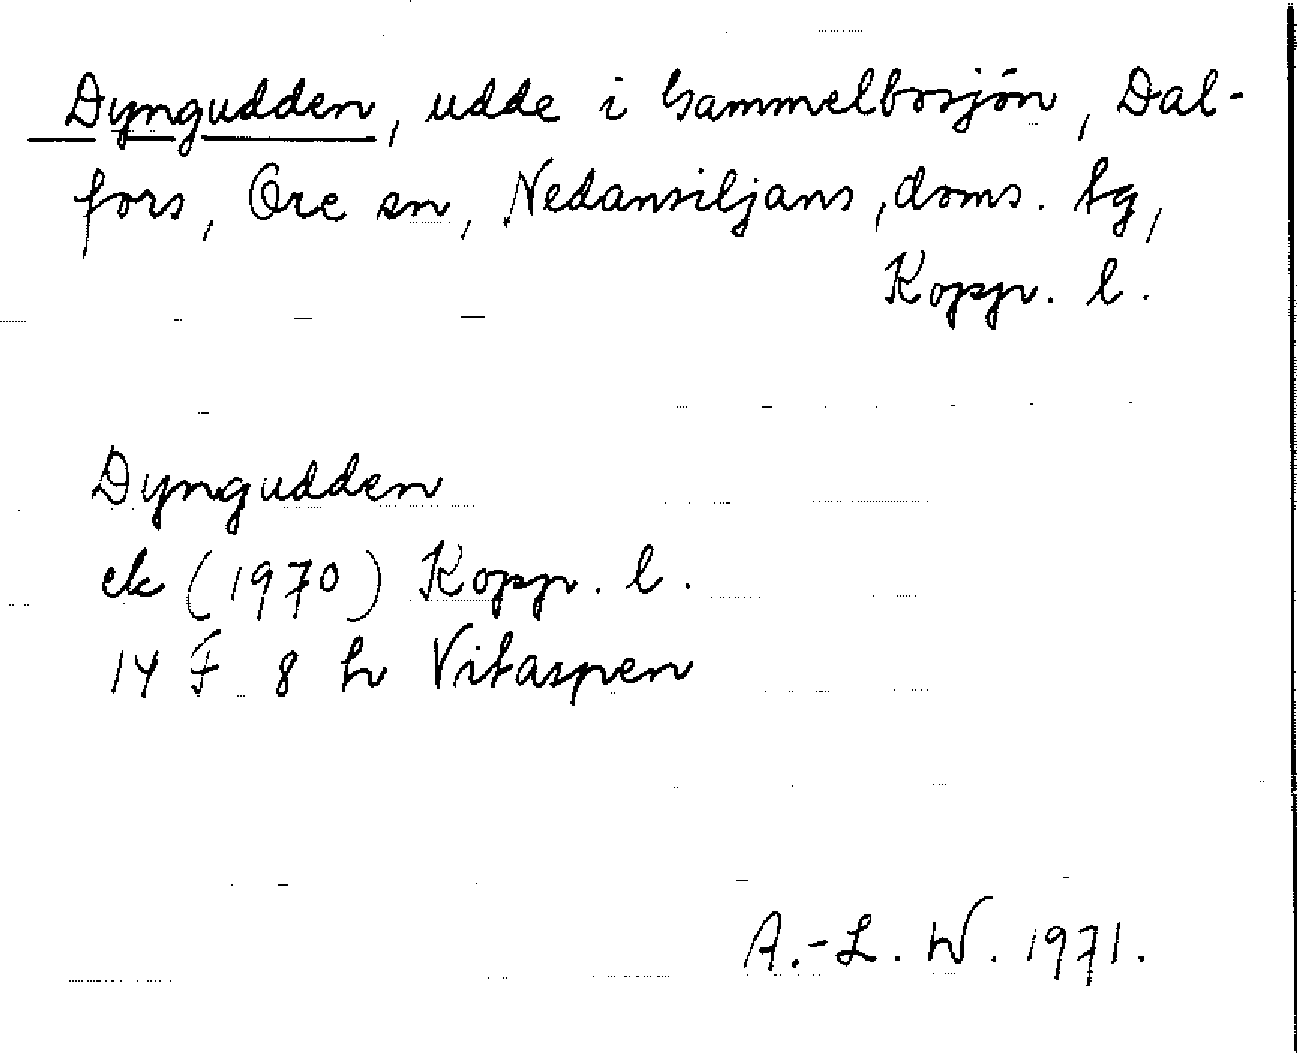 Dyngudden, udde i Gammelbosjön, Dal-
fors, Ore sn, Nedansiljans, doms. tg,
Kopp. l.
Dyngudden
ek (1970) Kopp. l.
14 F 8 h Vitaspen
A.-L. W. 1971.